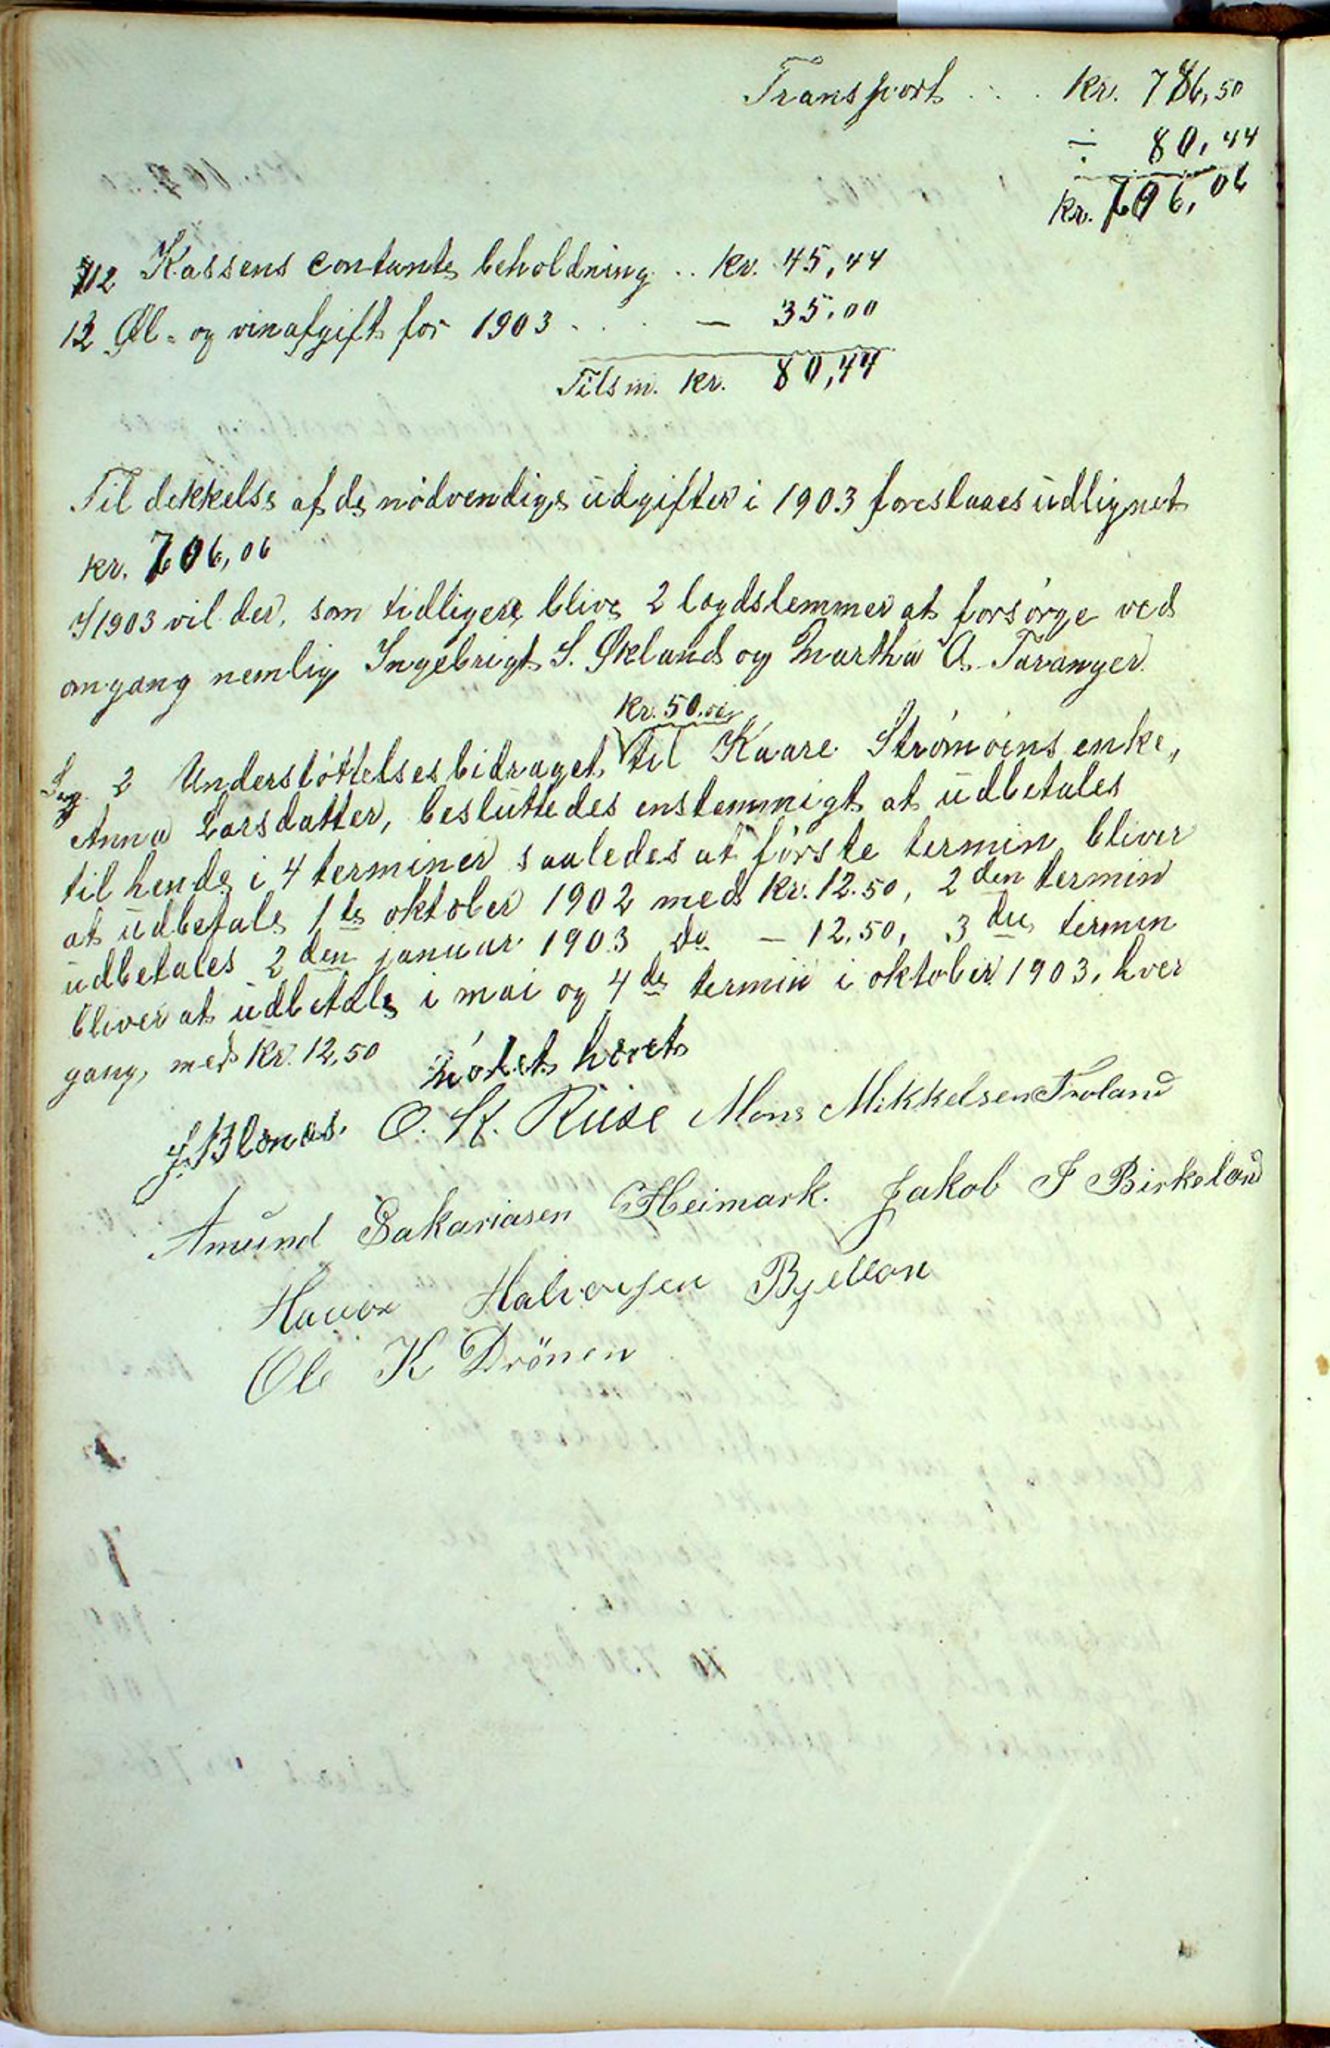 Transport . . . kr. 786,50
÷ 80,44
kr. 706,06
12 Kassens contante beholdning .. kr. 45,44
13 Øl- og vinafgift for 1903 . . . — 35,00
Tilsm. kr. 80,44
Til dekkelse af de nødvendige udgifter i 1903 foreslaaes udlignet
kr. 706,06
I 1903 vil der, som tidligere, blive 2 lægdslemmer at forsørge ved
omgang nemlig Ingebrigt S. Økland og Martha A. Taranger.
kr. 50.00
Sag 2 Understøttelsesbidraget til Kaare Strømøens enke,
Anna Larsdatter, besluttedes enstemmigt at udbetales
til hende i 4 terminer saaledes at første termin bliver
at udbetale 1te oktober 1902 med kr. 12.50, 2den termin
udbetales 2den januar 1903 do — 12,50, 3die termin
bliver at udbetale i mai og 4de termin i oktober 1903, hver
gang, med kr. 12,50
Mødet hævet
J. Blenes. O. K. Riise Mons Mikkelsen Troland
Amund Sakariasen Heimark. Jakob J Birkeland
Halvor Halvorsen Bjellan
Ole K Drönen